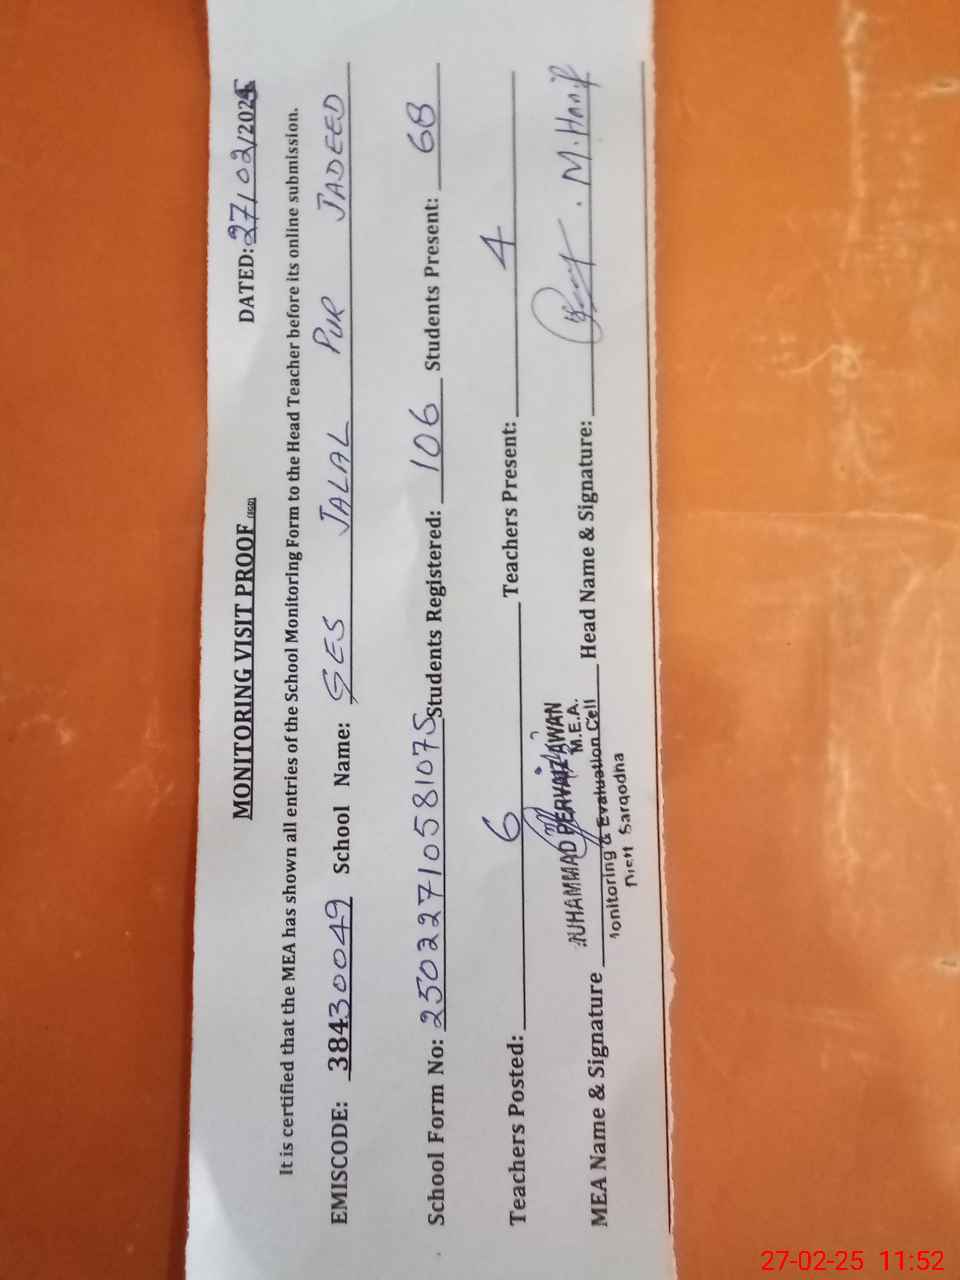 MONITORING VISIT PROOF (SGD)
DATED: 27/02/2025
It is certified that the MEA has shown all entries of the School Monitoring Form to the Head Teacher before its online submission.
EMISCODE: 38430049 School Name: GES JALAL PUR JADEED
School Form No: 25022710581075 Students Registered: 106 Students Present: 68
Teachers Posted: 6 Teachers Present: 4
MEA Name & Signature Head Name & Signature: M. Hanif
MUHAMMAD PERVAIZ AWAN
M.E.A.
Monitoring & Evaluation Cell
Distt Sargodha
27-02-25 11:52